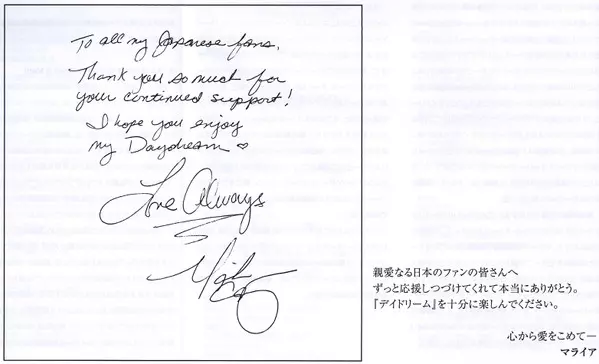 To all my Japanese fans,
Thank you so much for
your continued support!
I hope you enjoy
my Daydream ♡
Love Always
親愛なる日本のファンの皆さんへ
ずっと応援しつづけてくれて本当にありがとう。
『デイドリーム』を十分に楽しんでください。
心から愛をこめてー
マライア